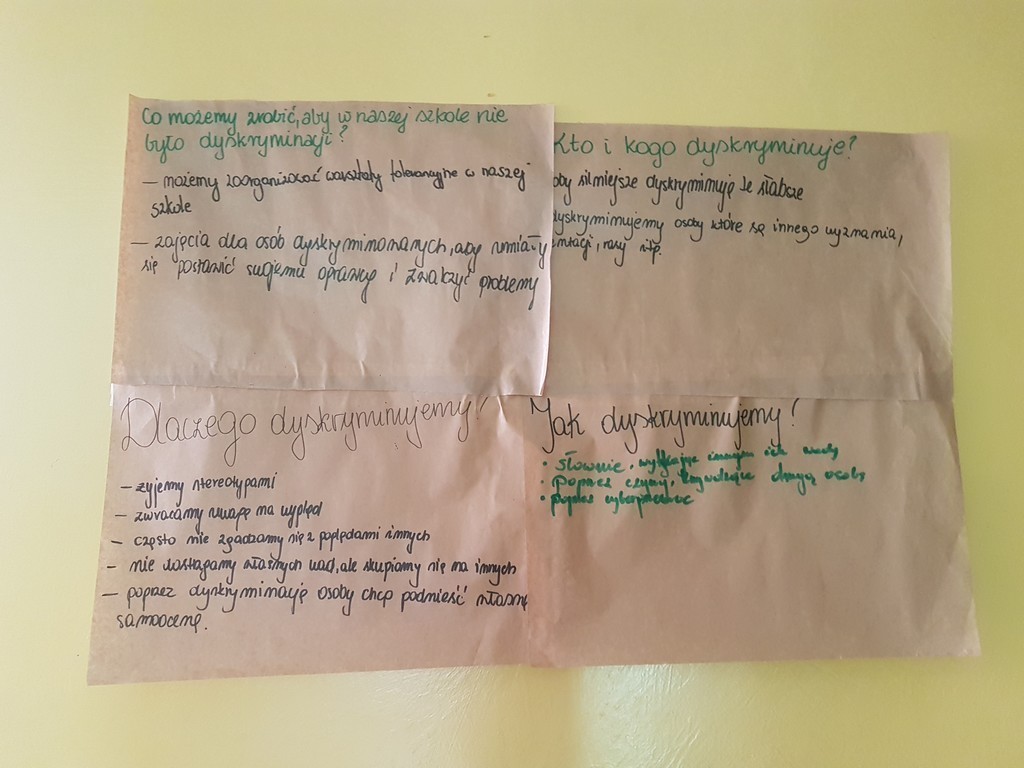 Co możemy zrobić, aby w naszej szkole nie
było dyskryminacji?
– możemy zoorganizować warsztaty tolerancyjne w naszej
szkole
– zajęcia dla osób dyskryminowanych, aby umiały
się postawić swojemu oprawcy i zwalczyć problemy
Kto i kogo dyskryminuje?
oby silniejsze dyskryminuję te słabsze
dyskryminujemy osoby które są innego wyznania,
entacji, rasy itp.
Dlaczego dyskryminujemy?
– żyjemy stereotypami
– zwracamy uwagę na wygląd
– często nie zgadzamy się z poglądami innych
– nie dostrzegamy własnych wad, ale skupiamy się na innych
– poprzez dyskryminację osoby chcą podnieść własną
samoocenę.
Jak dyskryminujemy?
• słownie, wytykając innym ich wady
• poprzez czyny, drugą osobę
• poprzez cyberprzemoc